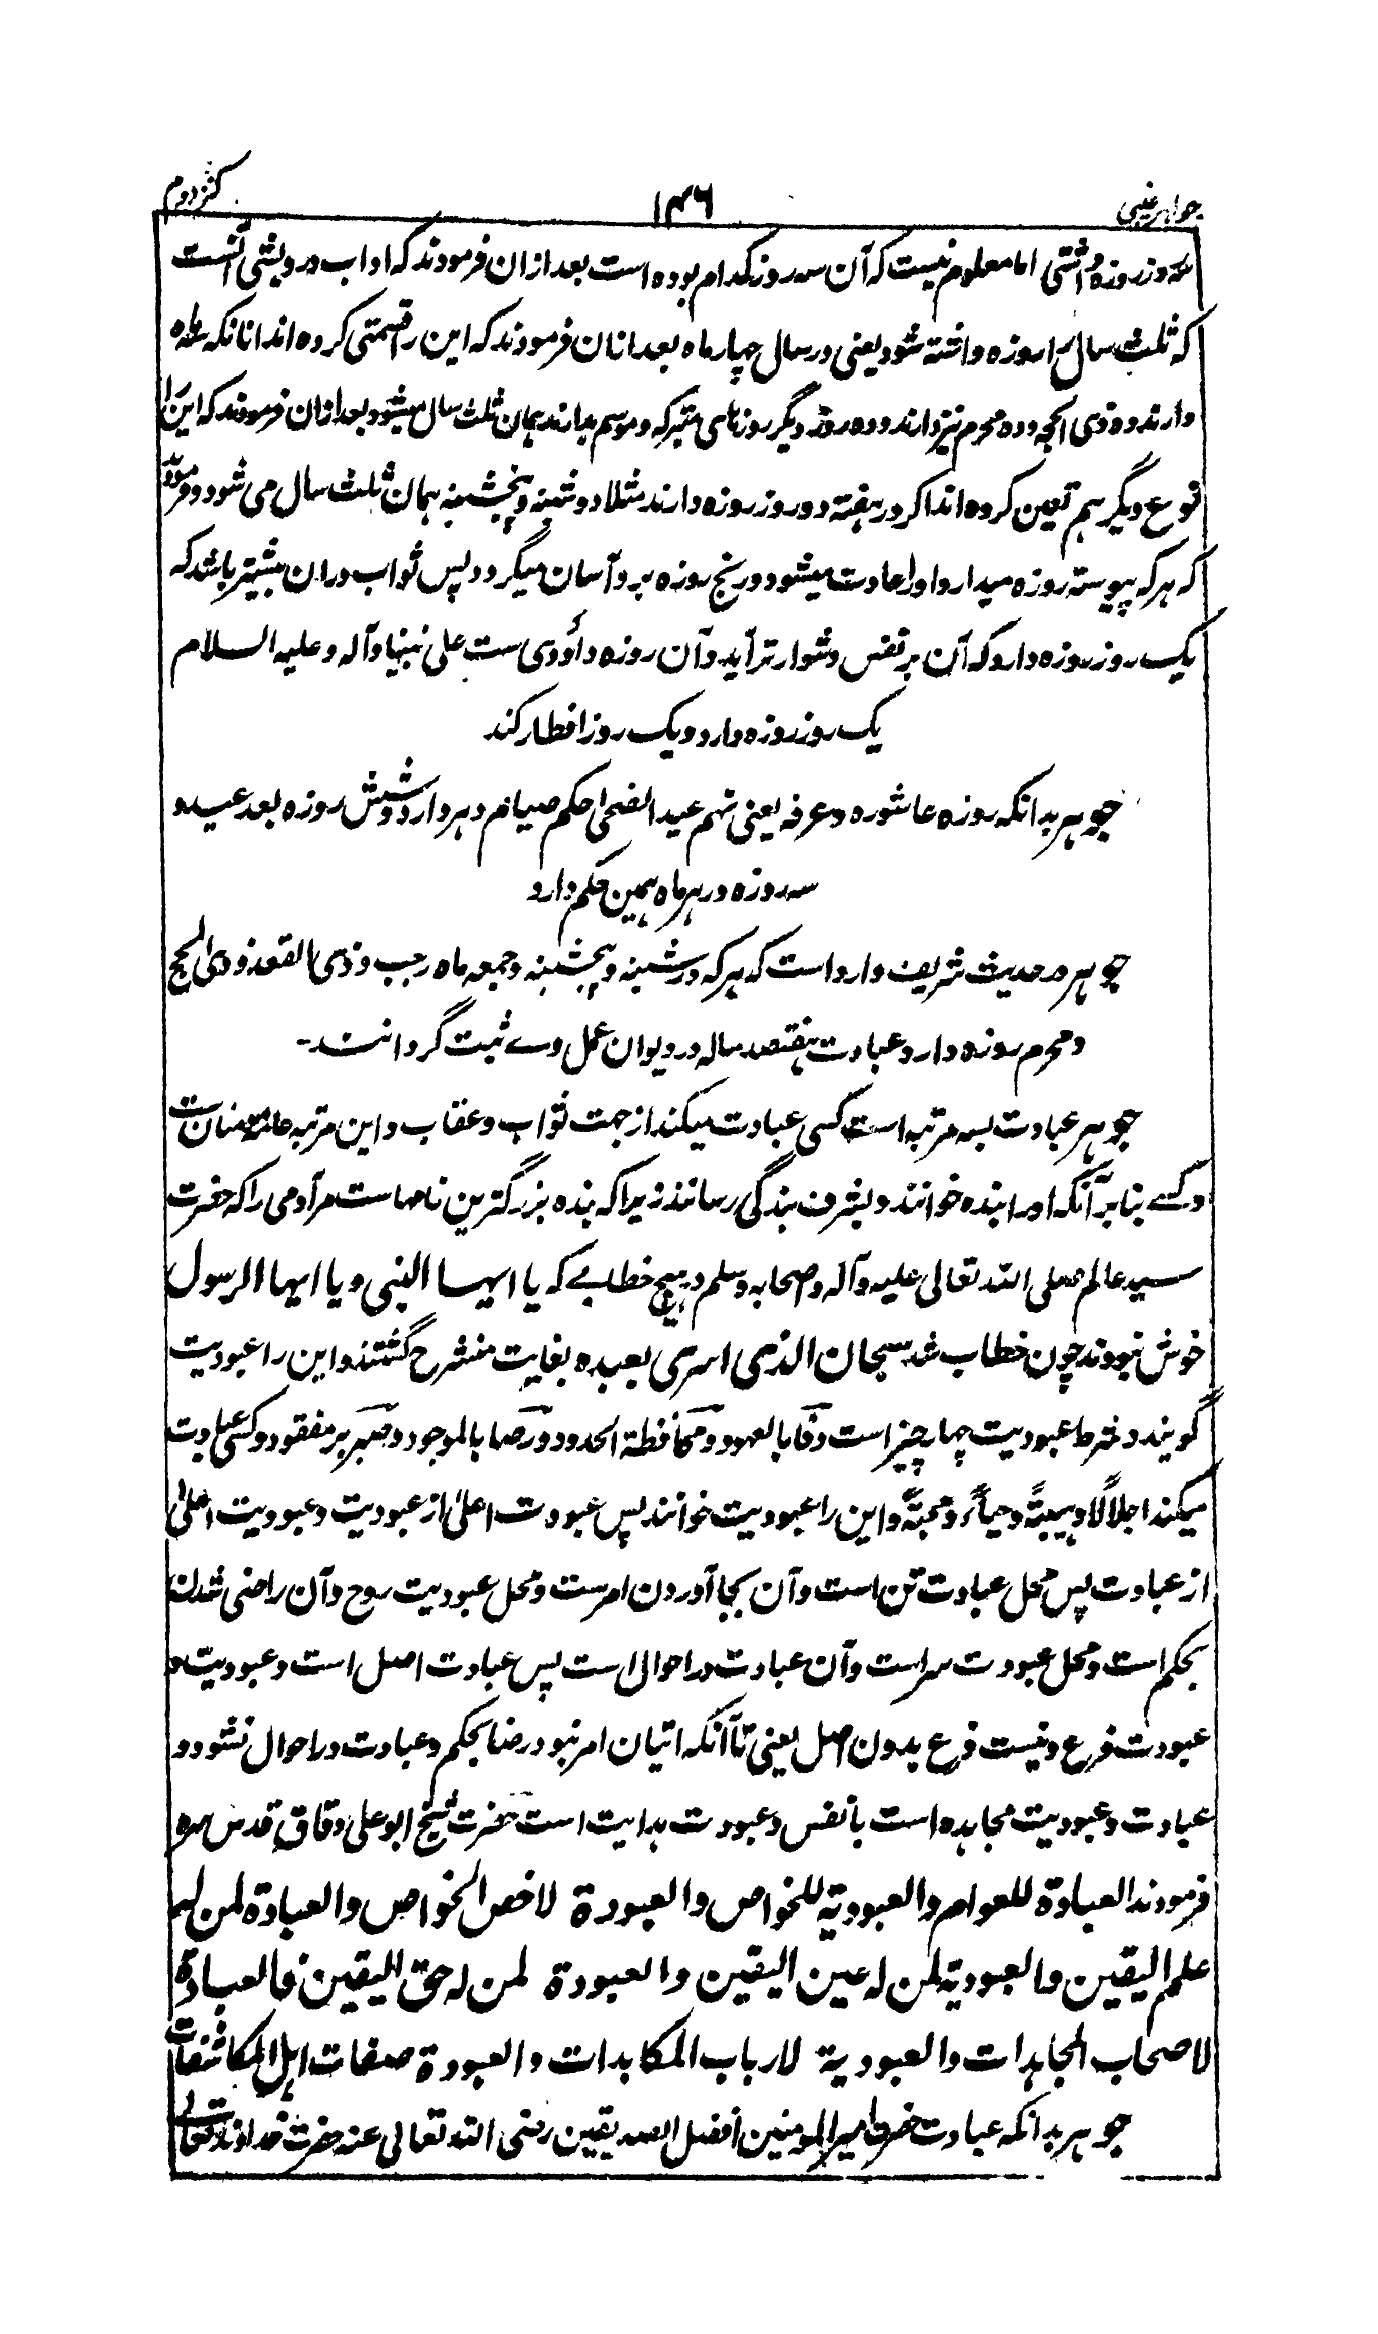 جواهر غیبی
۱۴۶
کنز دوم
سه روز روزه داشتی اما معلوم نیست که آن سه روز کدام بوده است بعد ازان فرمودند که آداب درویشی آنست
که ثلث سال را روزه داشته شود یعنی در سال چهار ماه بعد ازان فرمودند که این را قسمتی کرده اند آنانکه سه ماه
دارند و ده ذی الحجه و ده محرم نیز دارند و ده روز دیگر روزهای متبرکه و موسم بدارند همان ثلث سال میشود بعد ازان فرمودند که این را
نوع دیگر هم تعین کرده اند اگر در هفته دو روز روزه دارند مثلا دوشنبه و پنجشنبه همان ثلث سال می شود و فرمودند
که هر که پیوسته روزه میدارد او را عادت میشود و رنج روزه بر و آسان میگردد پس ثواب دران بیشتر باشد که
یک روز روزه دارد که آن بر نفس دشوار تر آید و آن روزه داؤدی ست علی نبینا و آله و علیه السلام
یک روز روزه دارد و یک روز افطار کند
جوهر بدانکه روزه عاشوره و عرفه یعنی نهم عید الضحی حکم صیام دهر دارد و شش روزه بعد عید و
سه روزه در هر ماه همین حکم دارد
جوهر در حدیث شریف وارد است که هر که در شنبه و پنجشنبه و جمعه ماه رجب و ذی القعد و ذی الحج
و محرم روزه دارد عبادت هفتصد ساله در دیوان عمل وے ثبت گردانند-
جوهر عبادت بسه مرتبه است کسی عبادت میکند از جهت ثواب و عقاب و این مرتبه عامه مومنان ست
و کسے بنا بر آنکه او را بنده خوانند و بشرف بندگی رسانند زیرا که بنده بزرگترین نامهاست مر آدمی را که حضرت
سید عالم صلی الله تعالی علیه و آله و صحابه و سلم در هیچ خطابے که یا ایها النبی و یا ایها الرسول
خوش نبودند چون خطاب شد سبحان الذی اسری بعبده بغایت منشرح گشتند و این را عبودیت
گویند و شرط عبودیت چهار چیز است وفا بالعهود و محافظة الحدود و رضا بالموجود و صبر بر مفقود و کسی عبادت
میکند اجلالًا و هیبةً و حیاءً و محبةً و این را عبودیت خوانند پس عبودت اعلیٰ از عبودیت و عبودیت اعلیٰ
از عبادت پس محل عبادت تن است و آن بجا آوردن امرست و محل عبودیت روح و آن راضی شدن
بحکم است و محل عبودت سر است و آن عبادت در احوال است پس عبادت اصل است و عبودیت و
عبودت فرع و نیست فرع بدون اصل یعنی تا آنکه اتیان امر نبود رضا بحکم و عبادت در احوال نشود و
عبادت و عبودیت مجاهده است بانفس و عبودت هدایت است حضرت شیخ ابو علی دقاق قدس سره
فرمودند العبادة للعوام والعبودیة للخواص والعبودة لاخص الخواص والعبادة لمن له
علم الیقین والعبودیة لمن له عین الیقین والعبودة لمن له حق الیقین فالعبادة
لاصحاب المجاهدات والعبودیة لارباب المکابدات والعبودة صفات اهل المکاشفات
جوهر بدانکه عبادت حضرت امیر المومنین افضل الصدیقین رضی الله تعالی عنه حضرت خداوند تعالی